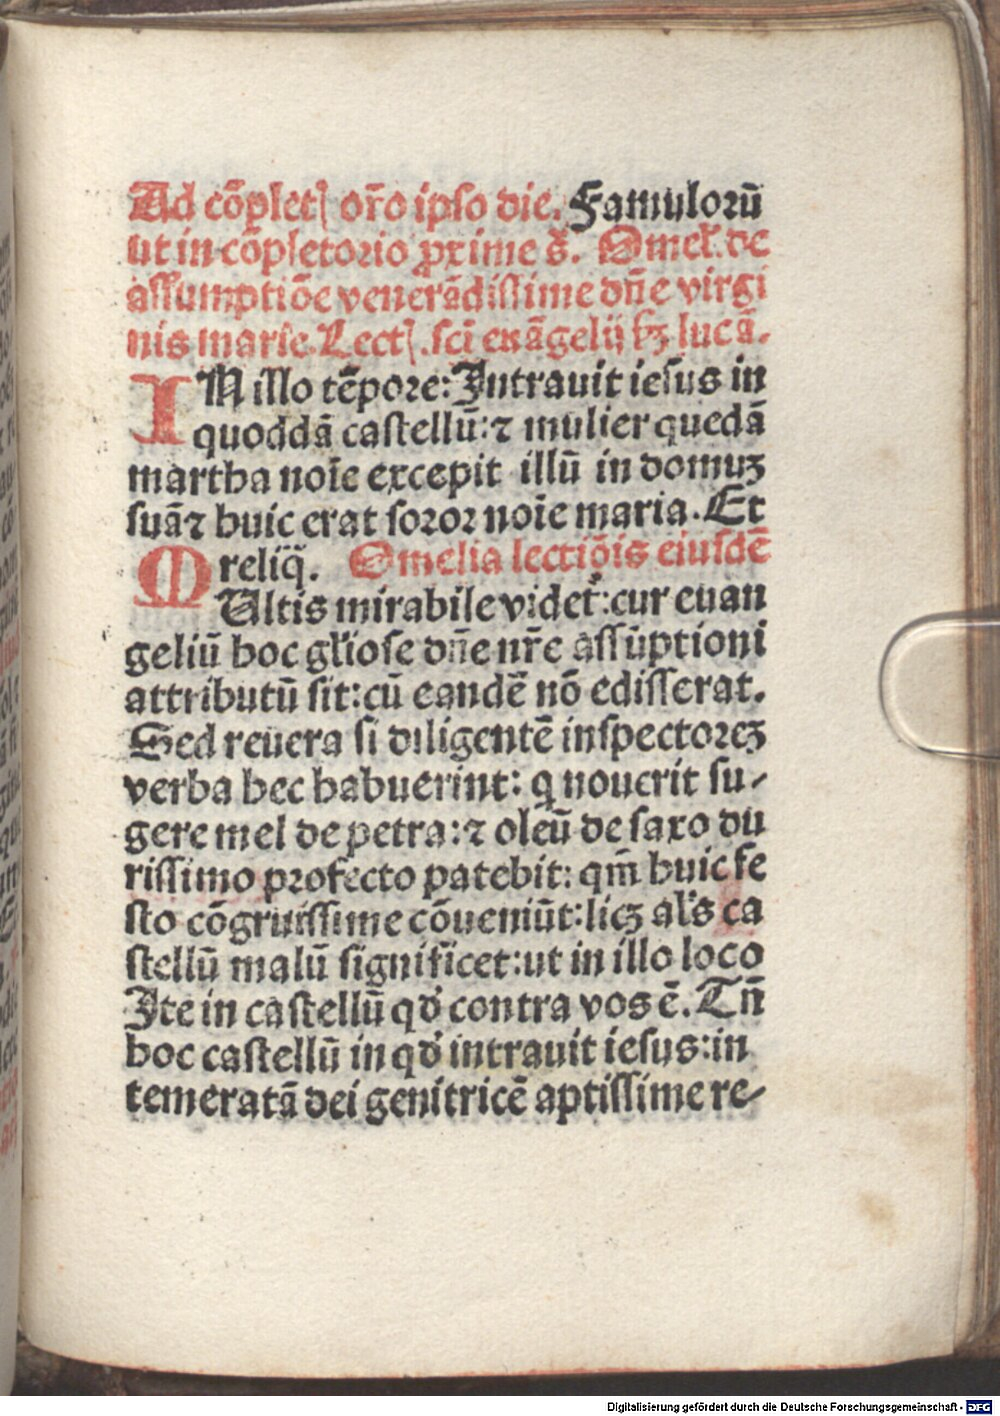 Ad cōpletꝭ or̄o ipso die. Famulorū
ut in cōpletorio ꝓxime s̄. Omel̄. de
assumptiōe venerādissime dn̄e virgi
nis marie. Lectꝭ. sci̅ euāgelij ẜꝫ lucā.
IN illo tēpore: Intrauit iesus in
quoddā castellū: ⁊ mulier quedā
martha noīe excepit illū in domuꝫ
suā ⁊ huic erat soror noīe maria. Et
reliq̄. Omelia lectiōis eiusdē
MUltis mirabile videt᷑: cur euan
geliū hoc gl̄iose dn̄e nr̄e assūptioni
attributū sit: cū eandē nō edisserat.
Sed reuera si diligentē inspectoreꝫ
verba hec habuerint: q nouerit su-
gere mel de petra: ⁊ oleū de saxo du
rissimo profecto patebit: qm̄ huic fe
sto cōgruissime cōueniūt: licꝫ al's ca
stellū malū significet: ut in illo loco
Ite in castellū qd̄ contra vos ē. Tn̄
hoc castellū in qd̄ intrauit iesus: in
temeratā dei genitricē aptissime re-
Digitalisierung gefördert durch die Deutsche Forschungsgemeinschaft - DFG